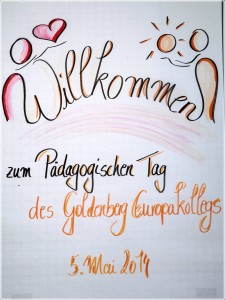 Willkommen
zum Pädagogischen Tag
des Goldenberg Europakollegs
5. Mai 2014